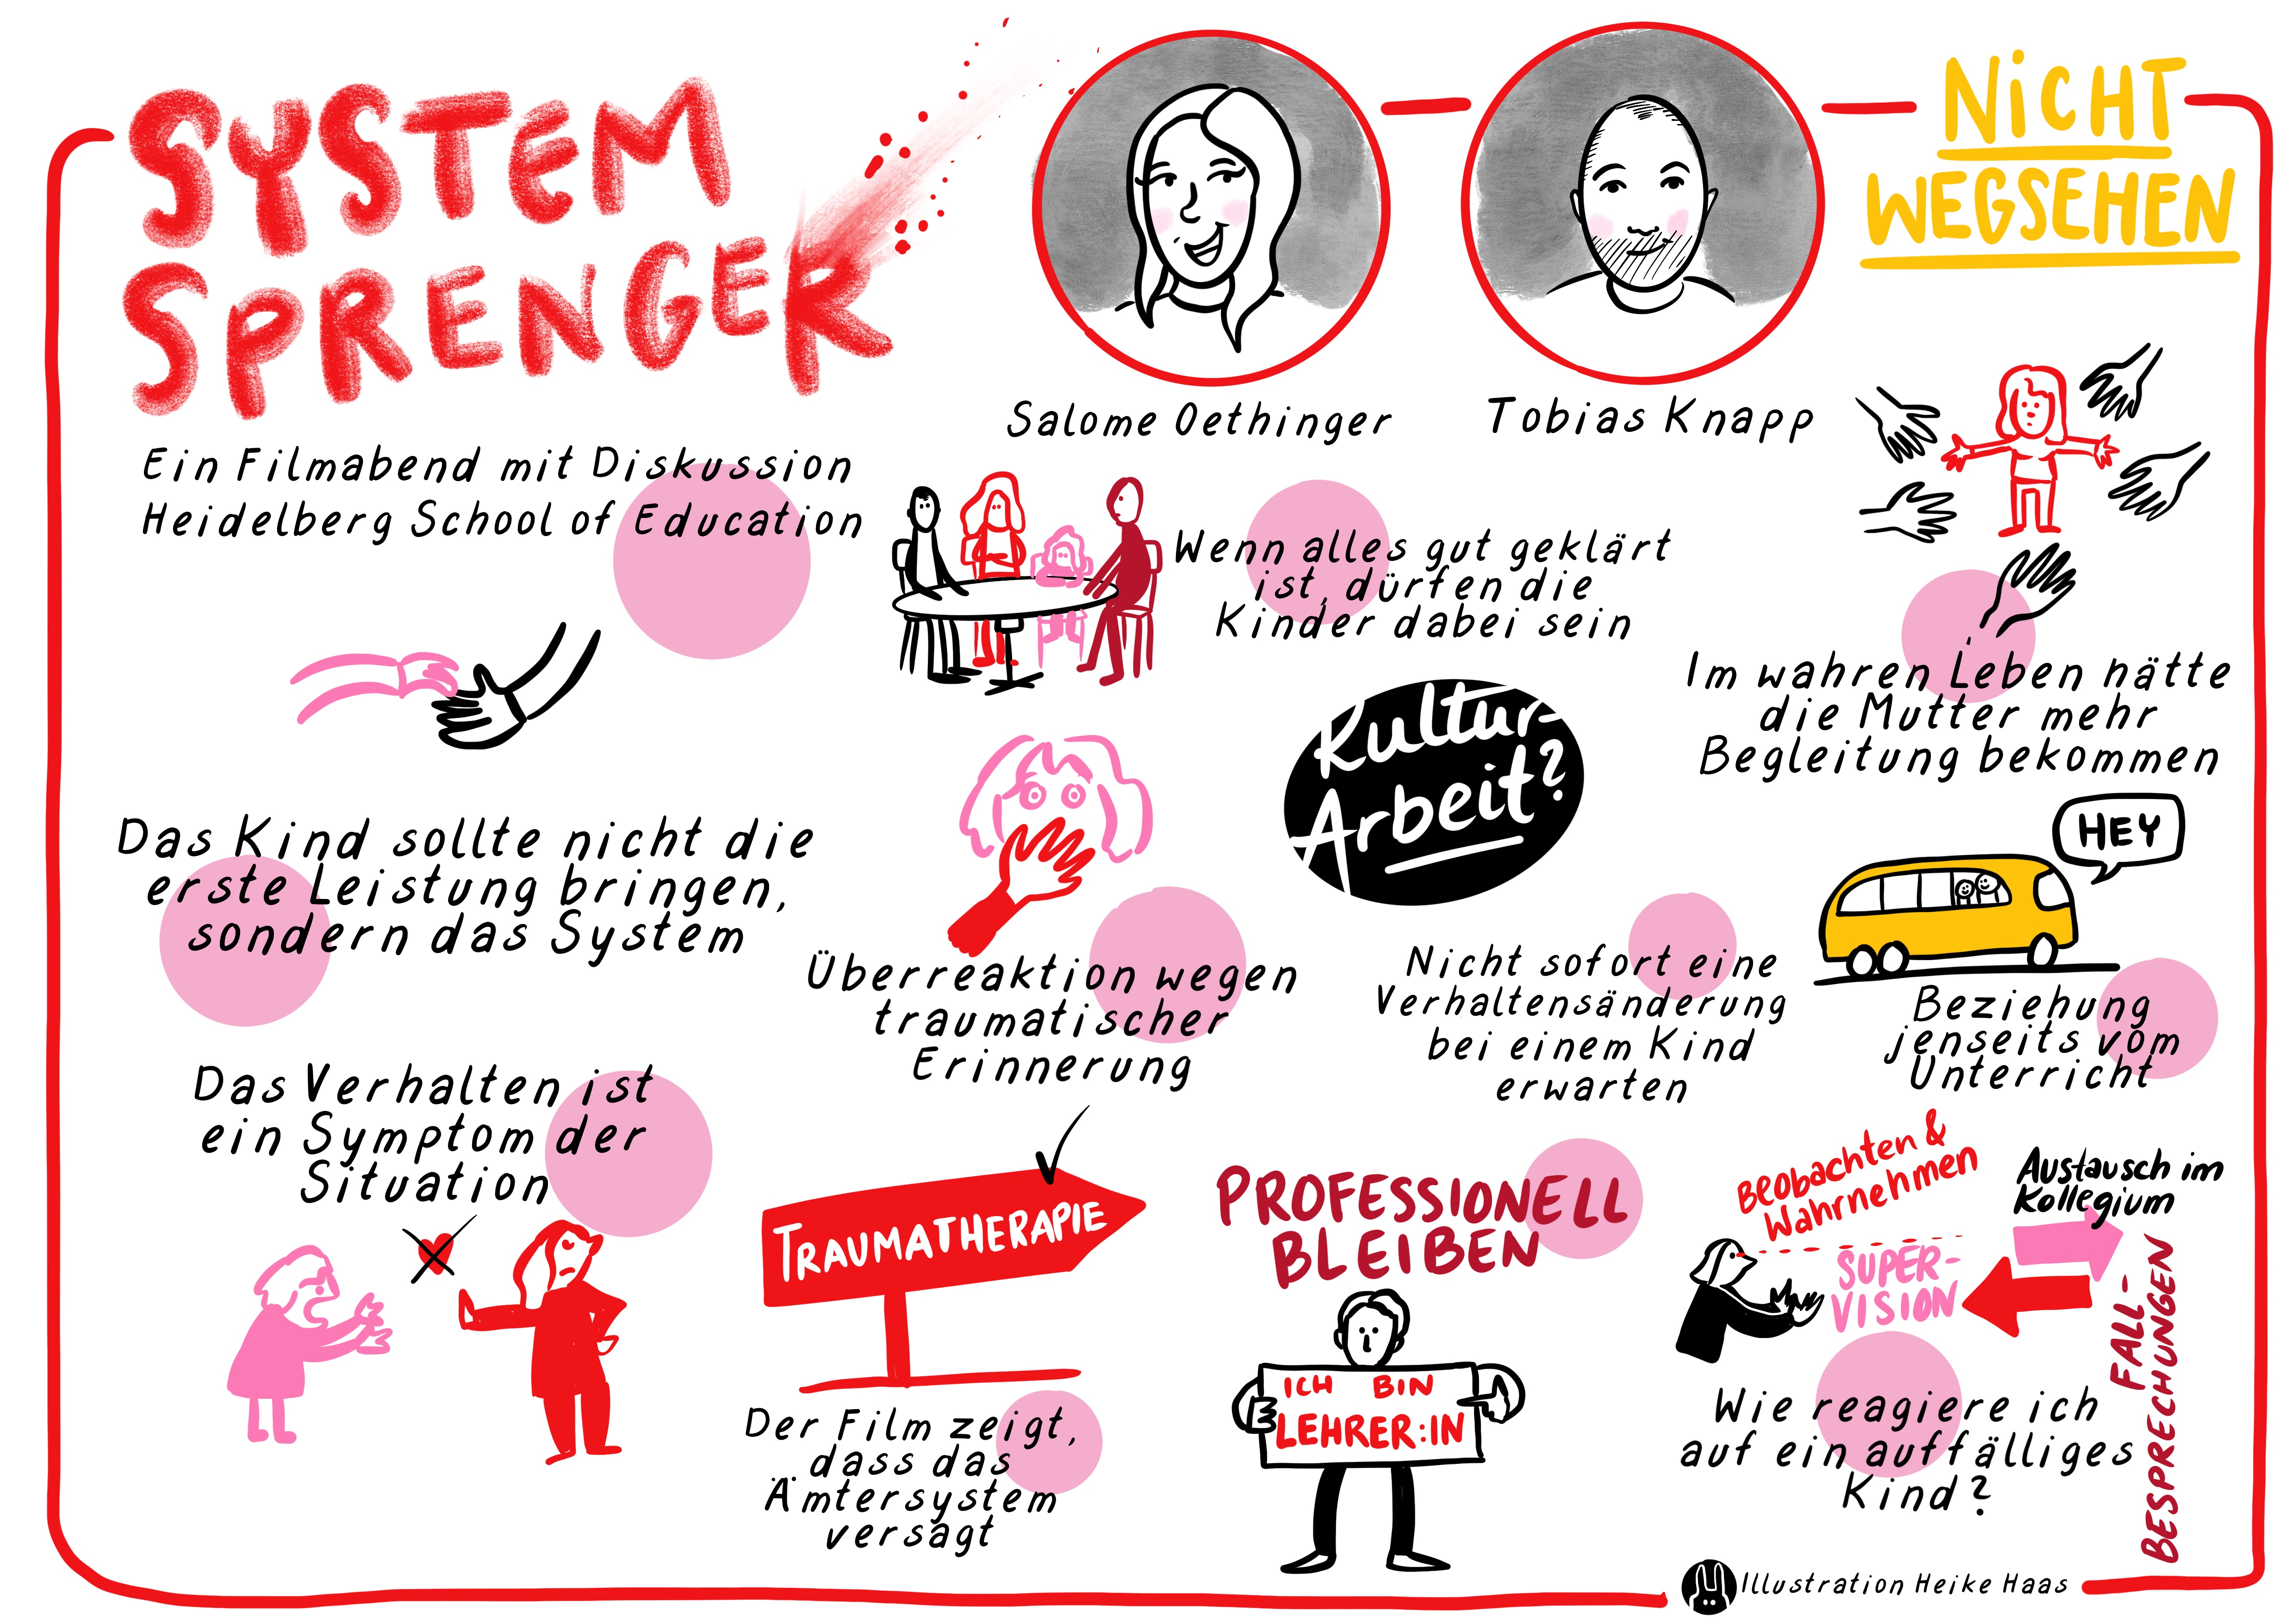 SYSTEM
SPRENGER
Ein Filmabend mit Diskussion
Heidelberg School of Education
Salome Oethinger
Tobias Knapp
NICHT
WEGSEHEN
Wenn alles gut geklärt
ist, dürfen die
Kinder dabei sein
Im wahren Leben hätte
die Mutter mehr
Begleitung bekommen
Das Kind sollte nicht die
erste Leistung bringen,
sondern das System
Kultur-
Arbeit?
HEY
Überreaktion wegen
traumatischer
Erinnerung
Nicht sofort eine
Verhaltensänderung
bei einem Kind
erwarten
Beziehung
jenseits vom
Unterricht
Das Verhalten ist
ein Symptom der
Situation
TRAUMATHERAPIE
Der Film zeigt,
dass das
Ämtersystem
versagt
PROFESSIONELL
BLEIBEN
ICH BIN
LEHRER:IN
Beobachten &
Wahrnehmen
Austausch im
Kollegium
SUPER-
VISION
FALL-
BESPRECHUNGEN
Wie reagiere ich
auf ein auffälliges
Kind?
Illustration Heike Haas